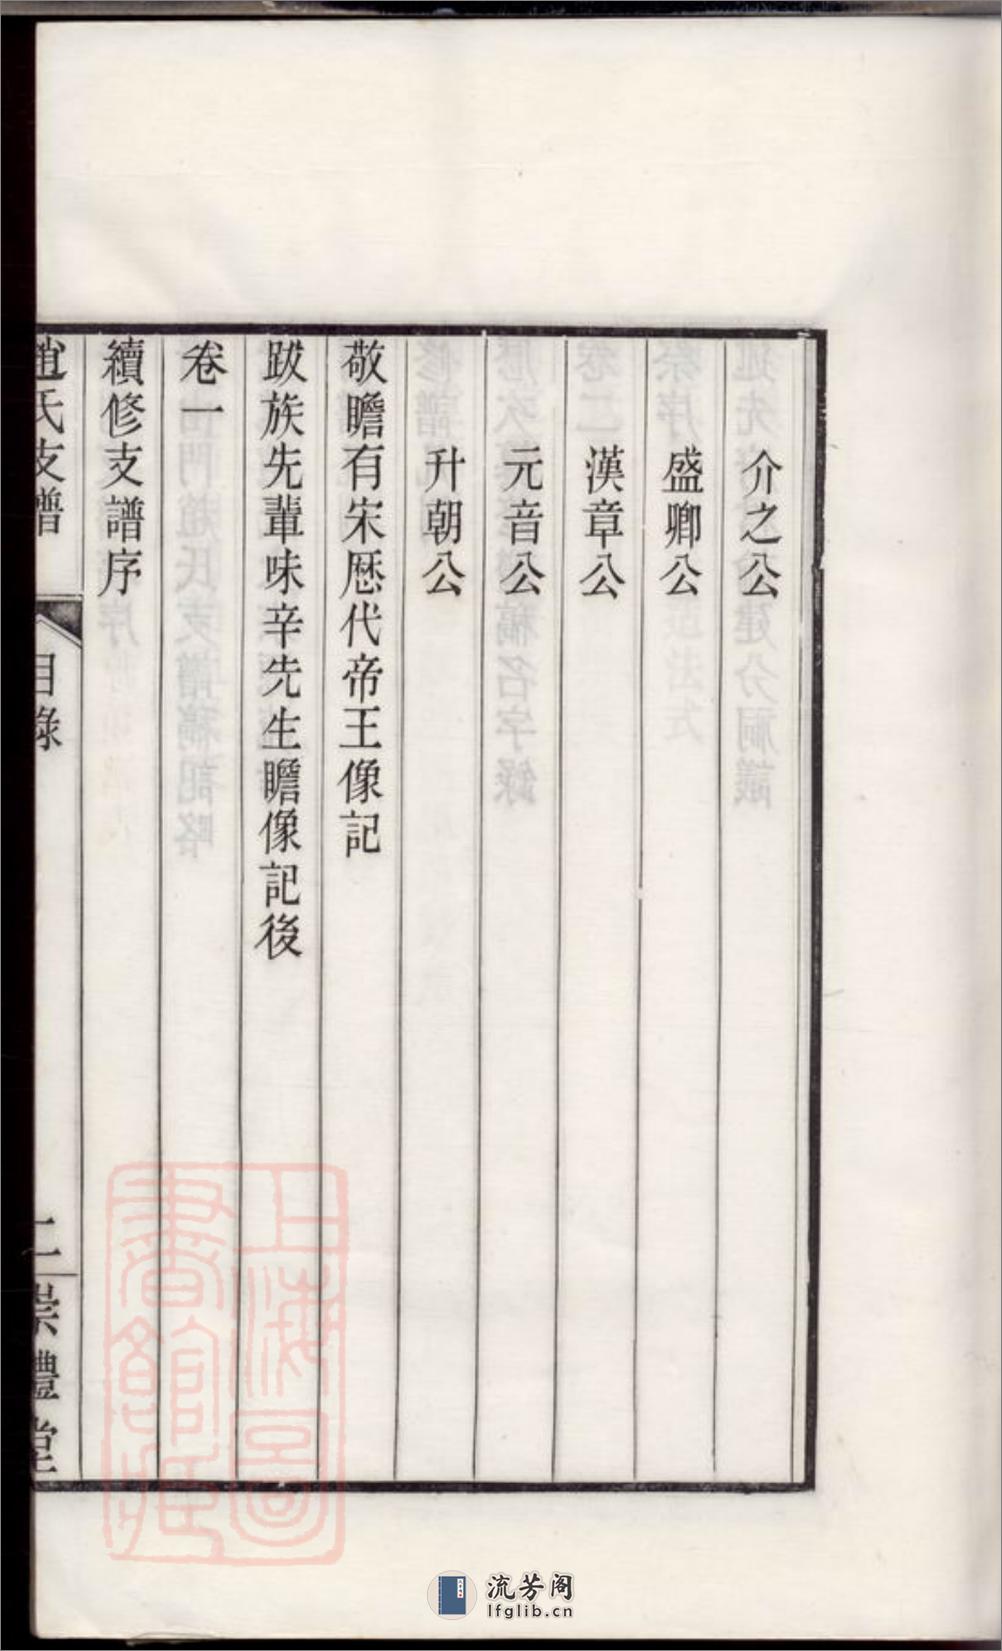 介之公
盛卿公
漢章公
元音公
升朝公
敬瞻有宋歷代帝王像記
跋族先輩味辛先生瞻像記後
卷一
續修支譜序
趙氏支譜
目錄
二
崇禮堂
上海圖書館藏
流芳阁
lfglib.cn